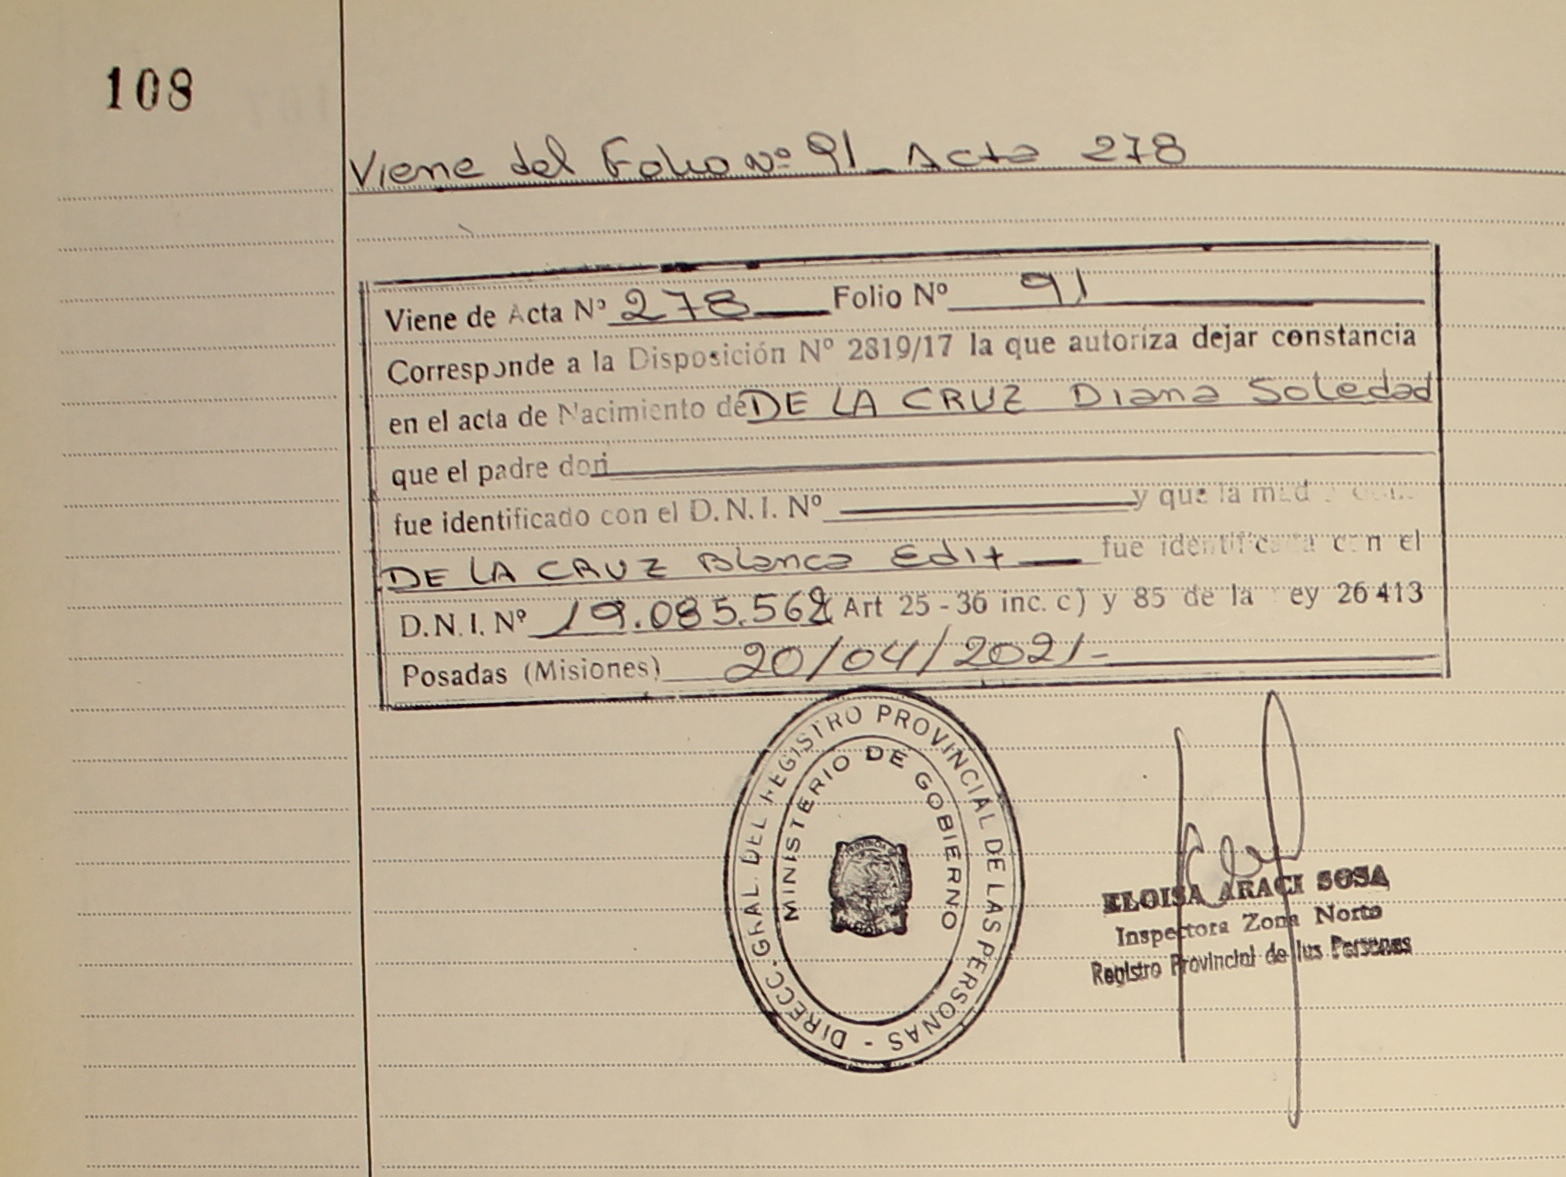 108
Viene del Folio Nº 91 Acta 278
Viene de Acta Nº 278 Folio Nº 91
Corresponde a la Disposición Nº 2819/17 la que autoriza dejar constancia
en el acta de Nacimiento de DE LA CRUZ Diana Soledad
que el padre don
fue identificado con el D.N.I. Nº y que la
DE LA CRUZ Blanca Edit fue identificada con el
D.N.I. Nº 19.085.562 Art 25 - 36 inc. c) y 85 de la ley 26413
Posadas (Misiones) 20/04/2021-
DIRECC. GRAL. DEL REGISTRO PROVINCIAL DE LAS PERSONAS -
MINISTERIO DE GOBIERNO
ELOISA ARACI SOSA
Inspectora Zona Norte
Registro Provincial de las Personas